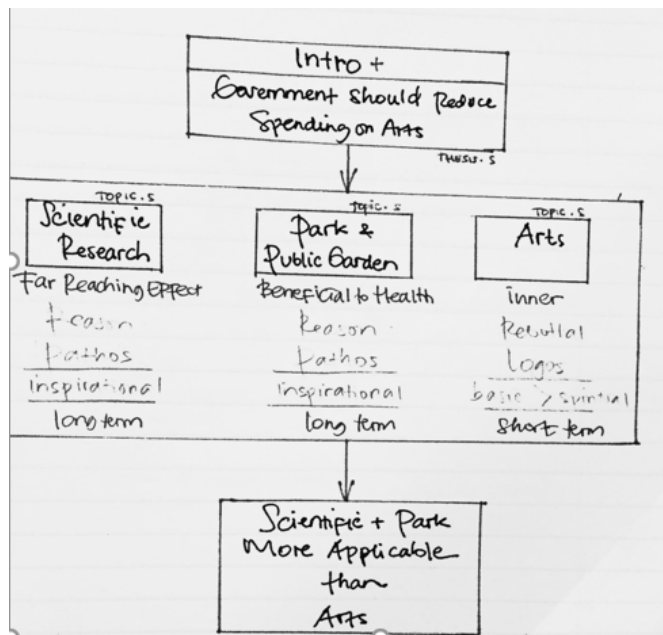 Intro +
Government Should Reduce
Spending on Arts
THESIS. S
TOPIC. S
Scientific
Research
Far Reaching Effect
Reason
Pathos
inspirational
long term
Topic. S
Park &
Public Garden
Beneficial to Health
Reason
Pathos
inspirational
long term
TOPIC. S
Arts
inner
Rebuttal
Logos
basic >
short term
Scientific + Park
More Applicable
than
Arts